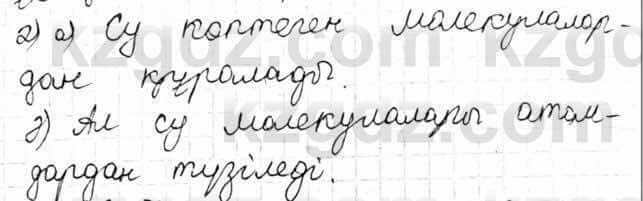 2) а) Су көптеген молекулалар-
дан құралады.
ә) Ал су молекулалары атом-
дардан түзіледі.
kzgdz.com